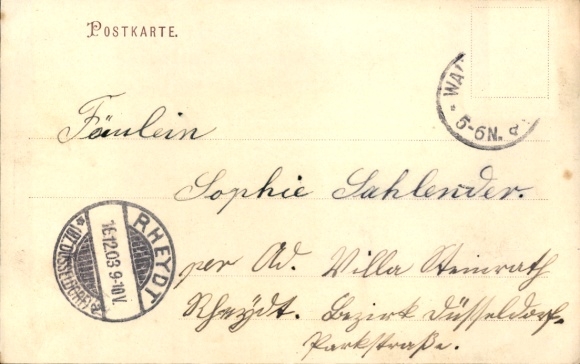 POSTKARTE.
WA
5-6N.
Fräulein
Sophie Sahlender.
RHEYDT
16.12.03 9-10V.
(BZ. DÜSSELDORF)
per Ad. Villa Steinrath
Rheydt. Bezirk Düsseldorf.
Parkstraße.